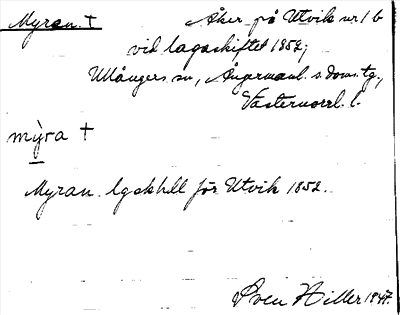 Myran. † Åker på Utvik nr 1 b
vid lagaskiftet 1852;
Ullångers sn, Ångermanl. s. doms. tg.,
Västernorrl. l.
mỳra †
Myran lgskhdl för Utvik 1852.
Sven Hiller 1947.